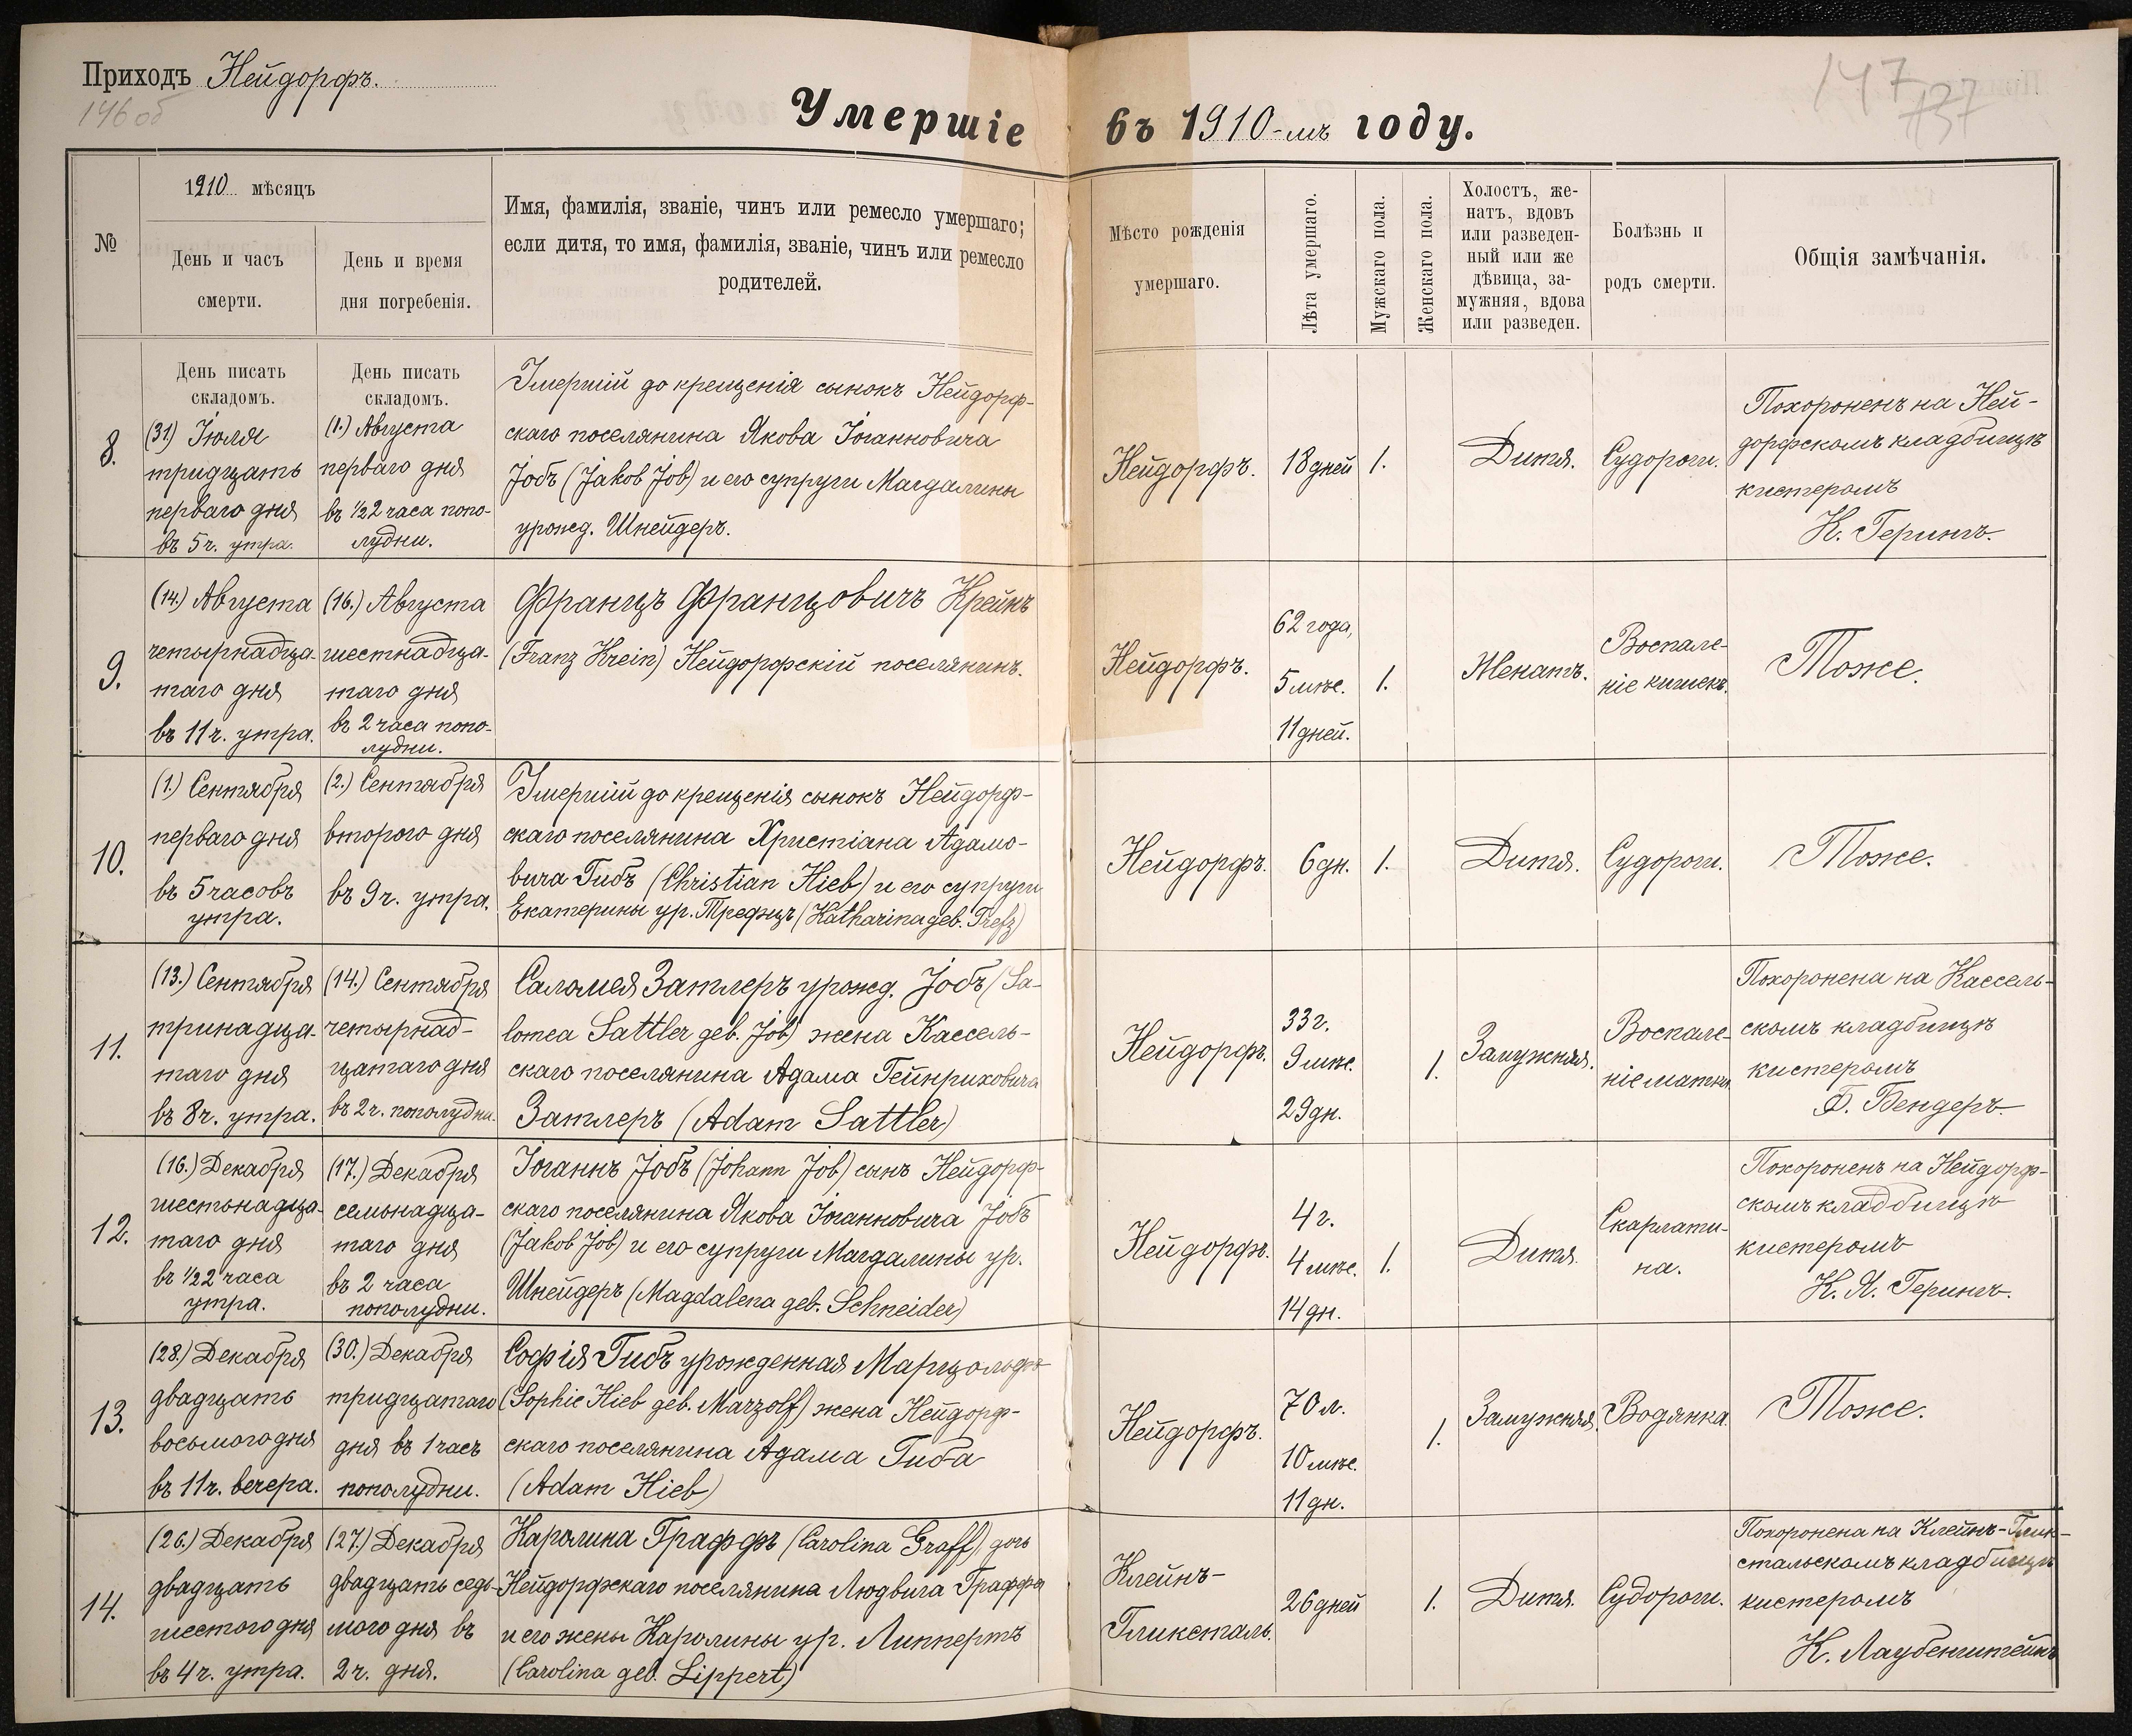 Приходъ Нейдорфъ.
146 об
147
137
Умершіе въ 1910-мъ году.
№
1910 мѣсяцъ
День и часъ
смерти.
День и время
дня погребенія.
Имя, фамилія, званіе, чинъ или ремесло умершаго;
если дитя, то имя, фамилія, званіе, чинъ или ремесло
родителей.
Мѣсто рожденія
умершаго.
Лѣта умершаго.
Мужскаго пола.
Женскаго пола.
Холостъ, же-
натъ, вдовъ
или разведен-
ный или же
дѣвица, за-
мужняя, вдова
или разведен.
Болѣзнь и
родъ смерти.
Общія замѣчанія.
День писать
складомъ.
День писать
складомъ.
8.
(31) Іюля
тридцать
перваго дня
въ 5 ч. утра.
(1.) Августа
перваго дня
въ ½2 часа попо-
лудни.
Умершій до крещенія сынокъ Нейдорф-
скаго поселянина Якова Іоганновича
Јобъ (Jakob Job) и его супруги Магдалины
урожд. Шнейдеръ.
Нейдорфъ.
18 дней
1.
Дитя.
Судороги.
Похороненъ на Ней-
дорфскомъ кладбищѣ
кистеромъ
К. Герингъ.
9.
(14.) Августа
четырнадца-
таго дня
въ 11 ч. утра.
(16.) Августа
шестнадца-
таго дня
въ 2 часа попо-
лудни.
Францъ Францовичъ Крейнъ
(Franz Krein) Нейдорфскій поселянинъ.
Нейдорфъ.
62 года,
5 мѣс.
11 дней.
1.
Женатъ.
Воспале-
ніе кишекъ.
Тоже.
10.
(1.) Сентября
перваго дня
въ 5 часовъ
утра.
(2.) Сентября
второго дня
въ 9 ч. утра.
Умершій до крещенія сынокъ Нейдорф-
скаго поселянина Христіана Адамо-
вича Гибъ (Christian Hieb) и его супруги
Екатерины ур. Трефцъ (Katharina geb. Trefz)
Нейдорфъ.
6 дн.
1.
Дитя.
Судороги.
Тоже.
11.
(13.) Сентября
тринадца-
таго дня
въ 8 ч. утра.
(14.) Сентября
четырнад-
цатаго дня
въ 2 ч. пополудни.
Саломея Затлеръ урожд. Јобъ (Sa-
lomea Sattler geb. Job) жена Кассель-
скаго поселянина Адама Гейнриховича
Затлеръ (Adam Sattler)
Нейдорфъ.
33 г.
9 мѣс.
29 дн.
1.
Замужняя.
Воспале-
ніе матки
Похоронена на Кассель-
скомъ кладбищѣ
кистеромъ
Ф. Бендеръ
12.
(16.) Декабря
шестьнадца-
таго дня
въ ½2 часа
утра.
(17.) Декабря
семьнадца-
таго дня
въ 2 часа
пополудни.
Іоганнъ Јобъ (Johann Job) сынъ Нейдорф-
скаго поселянина Якова Іоганновича Јобъ
(Jakob Job) и его супруги Магдалины ур.
Шнейдеръ (Magdalena geb. Schneider)
Нейдорфъ.
4 г.
4 мѣс.
14 дн.
1.
Дитя.
Скарлати-
на.
Похороненъ на Нейдорф-
скомъ кладбищѣ
кистеромъ
К. Я. Герингъ.
13.
(28.) Декабря
двадцать
восьмого дня
въ 11 ч. вечера.
(30.) Декабря
тридцатаго
дня въ 1 часъ
пополудни.
Софія Гибъ урожденная Марцольфъ
(Sophie Hieb geb. Marzolf) жена Нейдорф-
скаго поселянина Адама Гиба
(Adam Hieb)
Нейдорфъ.
70 л.
10 мѣс.
11 дн.
1.
Замужняя.
Водянка.
Тоже.
14.
(26.) Декабря
двадцать
шестого дня
въ 4 ч. утра.
(27.) Декабря
двадцать седь-
мого дня въ
2 ч. дня.
Каролина Граффъ (Carolina Graff), дочь
Нейдорфскаго поселянина Людвига Граффа
и его жены Каролины ур. Липпертъ
(Carolina geb. Lippert)
Клейнъ-
Гликсталь.
26 дней
1.
Дитя.
Судороги.
Похоронена на Клейнъ-Глик-
стальскомъ кладбищѣ
кистеромъ
К. Лаубенштейнъ